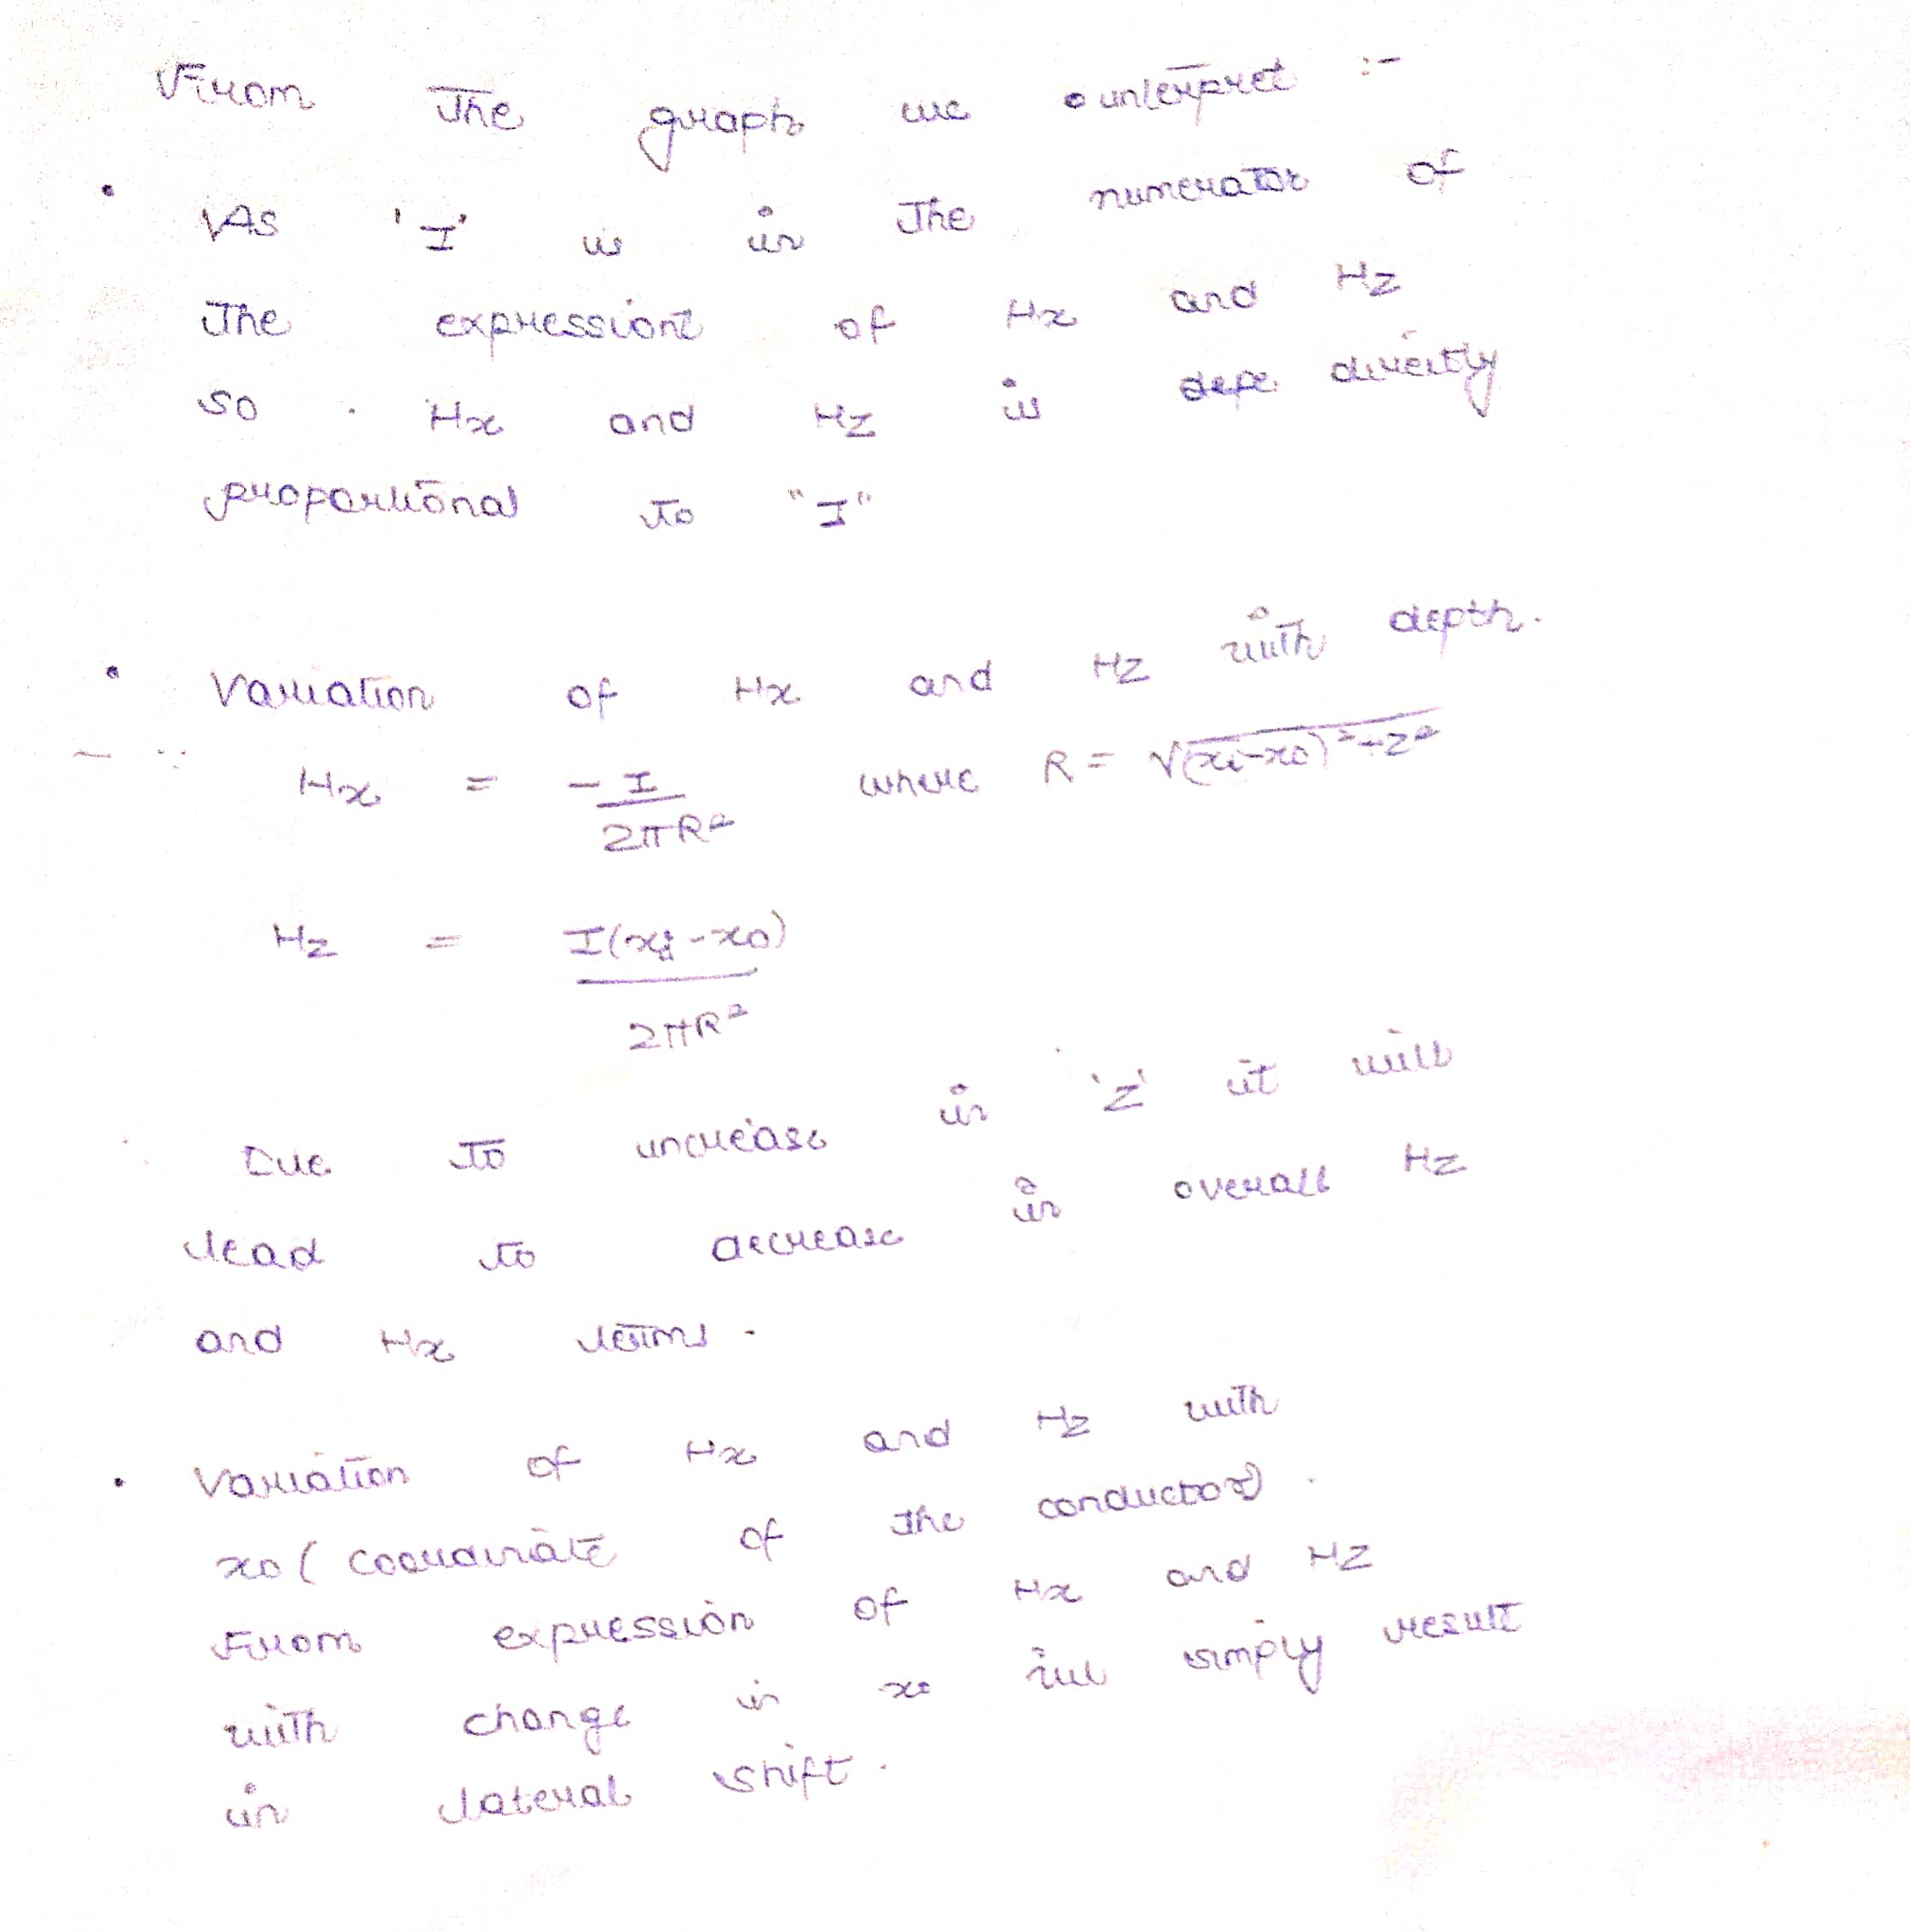 From The graph we interpret :-
• As 'I' is in The numerator of
The expression of Hx and Hz
so Hx and Hz is depe directly
proportional to "I"
• Variation of Hx and Hz with depth.
— ∵ Hx = -I/2πR² where R = √(xi-x0)²-z²
Hz = I(xi-x0)/2πR²
Due to increase in 'z' it will
lead to decrease in overall Hz
and Hx terms.
• Variation of Hx and Hz with
x0 ( coordinate of the conductor).
From expression of Hx and Hz
with change in x0 simply result
in lateral shift.